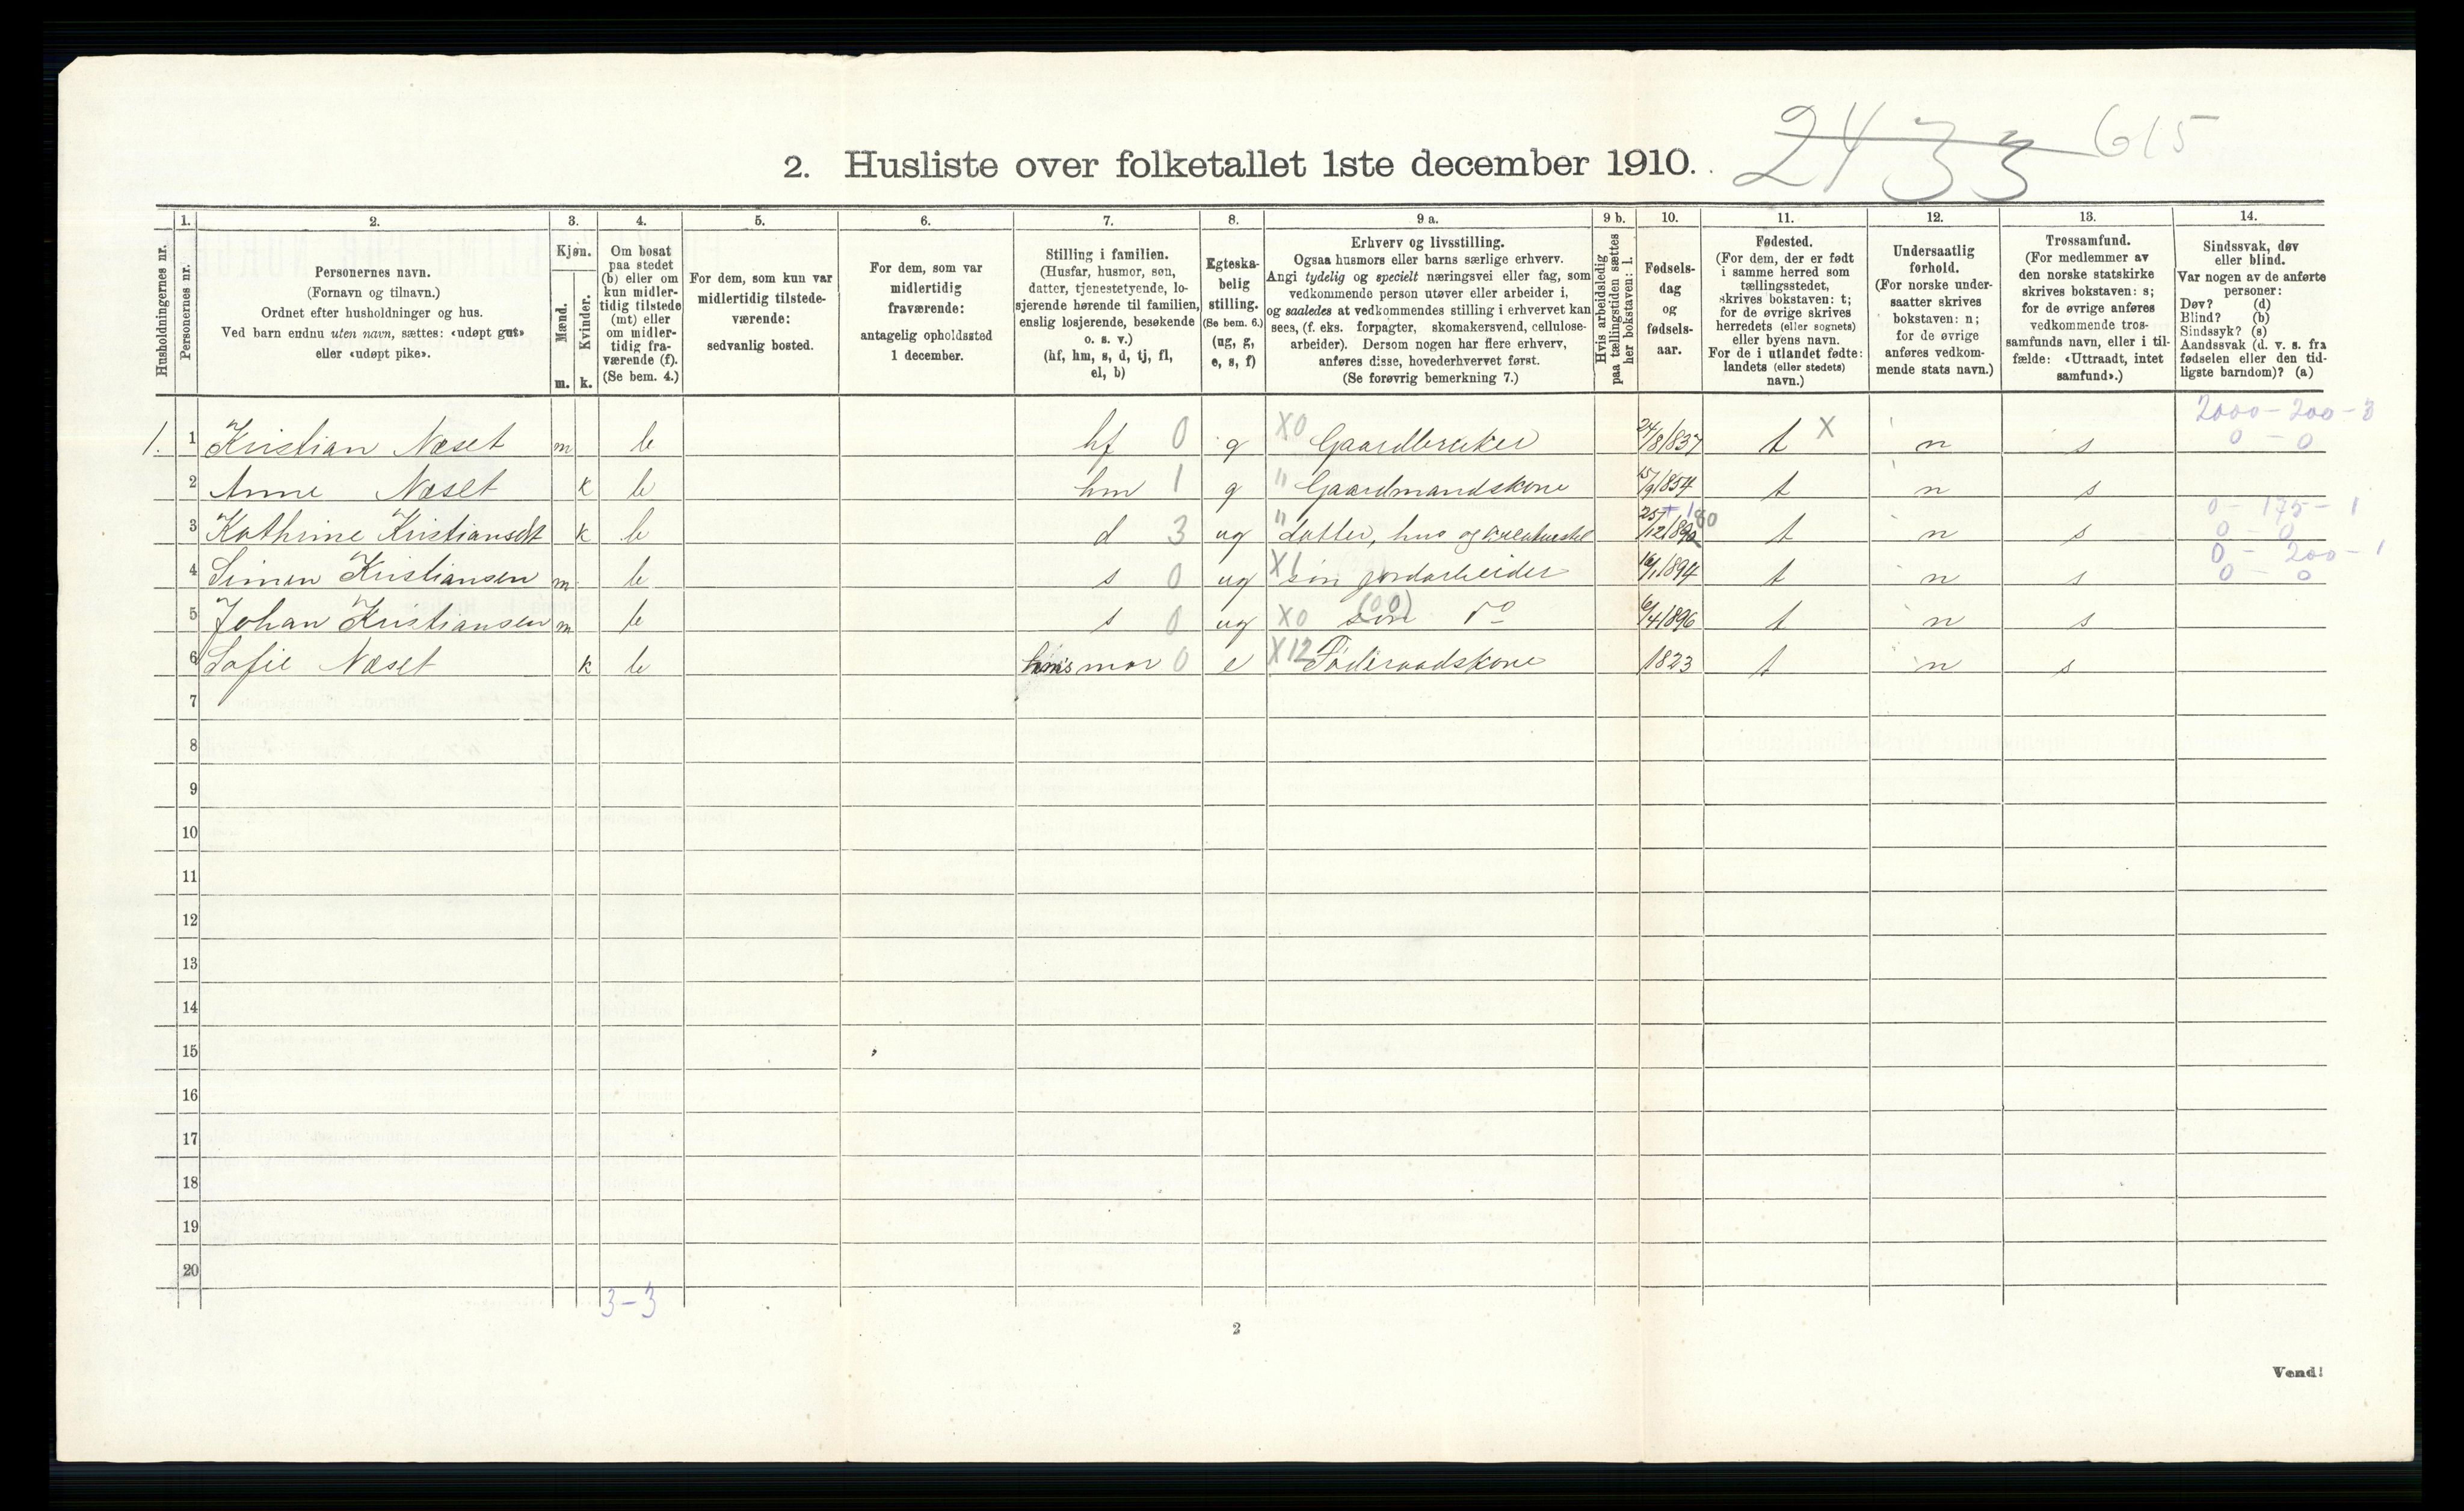 2433 615
2. Husliste over folketallet 1ste december 1910.
1. 2. 3. 4. 5. 6. 7. 8. 9 a. 9 b. 10. 11. 12. 13. 14.
Husholdningernes nr.
Personernes nr.
Personernes navn.
(Fornavn og tilnavn.)
Ordnet efter husholdninger og hus.
Ved barn endnu uten navn, sættes: «udøpt gut»
eller «udøpt pike».
Kjøn.
Mænd.
Kvinder.
m. k.
Om bosat
paa stedet
(b) eller om
kun midler-
tidig tilstede
(mt) eller
om midler-
tidig fra-
værende (f).
(Se bem. 4.)
For dem, som kun var
midlertidig tilstede-
værende:
sedvanlig bosted.
For dem, som var
midlertidig
fraværende:
antagelig opholdssted
1 december.
Stilling i familien.
(Husfar, husmor, søn,
datter, tjenestetyende, lo-
sjerende hørende til familien,
enslig losjerende, besøkende
o. s. v.)
(hf, hm, s, d, tj, fl,
el, b)
Egteska-
belig
stilling.
(Se bem. 6.)
(ug, g,
e, s, f)
Erhverv og livsstilling.
Ogsaa husmors eller barns særlige erhverv.
Angi tydelig og specielt næringsvei eller fag, som
vedkommende person utøver eller arbeider i,
og saaledes at vedkommendes stilling i erhvervet kan
sees, (f. eks. forpagter, skomakersvend, cellulose-
arbeider). Dersom nogen har flere erhverv,
anføres disse, hovederhvervet først.
(Se forøvrig bemerkning 7.)
Hvis arbeidsledig
paa tællingstiden sættes
her bokstaven: l.
Fødsels-
dag
og
fødsels-
aar.
Fødested.
(For dem, der er født
i samme herred som
tællingsstedet,
skrives bokstaven: t;
for de øvrige skrives
herredets (eller sognets)
eller byens navn.
For de i utlandet fødte:
landets (eller stedets)
navn.)
Undersaatlig
forhold.
(For norske under-
saatter skrives
bokstaven: n;
for de øvrige
anføres vedkom-
mende stats navn.)
Trossamfund.
(For medlemmer av
den norske statskirke
skrives bokstaven: s;
for de øvrige anføres
vedkommende tros-
samfunds navn, eller i til-
fælde: «Uttraadt, intet
samfund».)
Sindssvak, døv
eller blind.
Var nogen av de anførte
personer:
Døv? (d)
Blind? (b)
Sindssyk? (s)
Aandssvak (d. v. s. fra
fødselen eller den tid-
ligste barndom)? (a)
2000-200-3
1. 1 Kristian Næset m b hf 0 g X0 Gaardbruker 24/8 1837 t X n s 0-0
2 Anne Næset k b hm 1 g " Gaardmandskone 15/9 1854 t n s
0-175-1
3 Kathrine Kristiansdt k b d 3 ug " datter, hus og kreaturstel 25/12 1890 80 t n s 0-0
0-200-1
4 Simen Kristiansen m b s 0 ug X1 søn jordarbeider 16/1 1894 t n s 0-0
5 Johan Kristiansen m b s 0 ug X0 søn (00) do 6/4 1896 t n s
6 Sofie Næset k b hm's mor 0 e X12 Føderaadskone 1823 t n s
7
8
9
10
11
12
13
14
15
16
17
18
19
20
3-3
2
Vend!